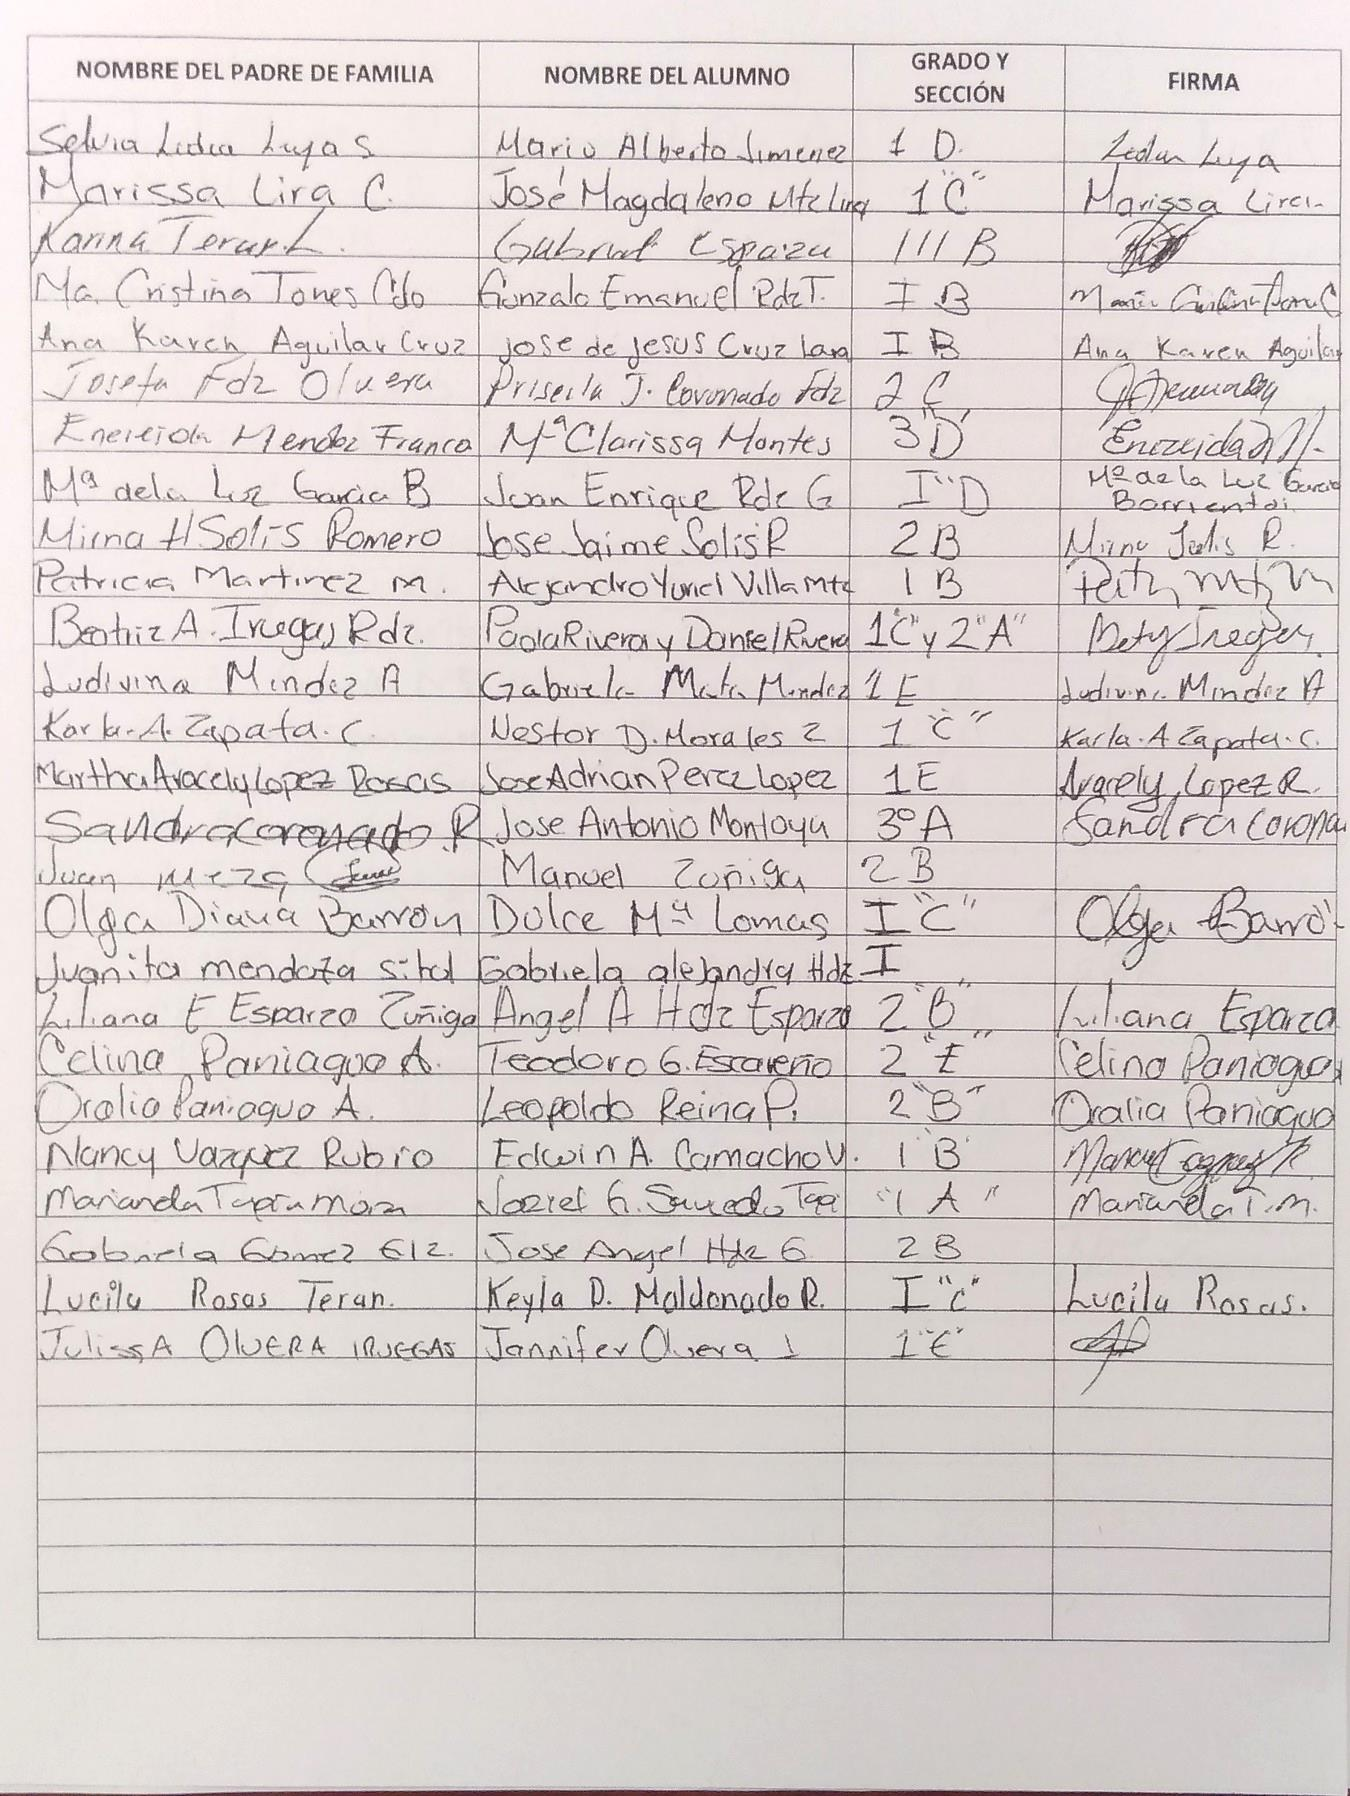 NOMBRE DEL PADRE DE FAMILIA NOMBRE DEL ALUMNO GRADO Y SECCIÓN FIRMA
Selvia Lidia Luya S Mario Alberto Jimenez 1 D. Luya
Marissa Lira C. José Magdaleno Mtz Lira 1 "C" Marissa Lira
Karina Teran L. Gabriel Esparza III B
Ma. Cristina Torres Cdo Gonzalo Emanuel Rdz T. I B
Ana Karen Aguilar Cruz Jose de Jesus Cruz Lara I B Ana Karen Aguilar
Josefa Fdz Olvera Priscila J. Coronado Fdz 2 C
Enereida Mendez Franco Mª Clarissa Montes 3 "D"
Mª de la Luz Garcia B Juan Enrique Rdz G I "D Mª de la Luz Garcia Barrientos
Mirna H Solis Romero Jose Jaime Solis R 2 B Mirna Solis R.
Patricia Martinez M. Alejandro Yuriel Villa Mtz 1 B
Beatriz A. Iruegas Rdz. Paola Rivera y Daniel Rivera 1 "C" y 2 "A"
Ludivina Mendez A Gabriela Mata Mendez 1 E Ludivina Mendez A
Karla. A. Zapata. C. Nestor D. Morales Z 1 "C" Karla. A Zapata. C.
Martha Aracely Lopez Rosas Jose Adrian Perez Lopez 1 E Aracely Lopez R.
Sandra Coronado R Jose Antonio Montoya 3º A Sandra Corona
Juan Meza Manuel Zuñiga 2 B
Olga Diana Barron Dulce Mª Lomas I "C" Olga Barró
Juanita mendoza Gabriela alejandra Hdz I
Liliana E Esparza Zuñiga Angel A Hdz Esparza 2 "B" Liliana Esparza
Celina Paniagua A. Teodoro G. Escareño 2 "E" Celina Paniagua
Oralia Paniagua A. Leopoldo Reina P. 2 "B" Oralia Paniagua
Nancy Vazquez Rubio Edwin A. Camacho V. 1 B
Marianda Tapia Mora G. Saucedo "1 A" Marianda T. M.
Gabriela Gomez Glz. Jose Angel Hdz G 2 B
Lucila Rosas Teran. Keyla D. Maldonado R. I "C" Lucila Rosas.
JulissA OlVERA IRUEGAS Jannifer Olvera I 1 "E"